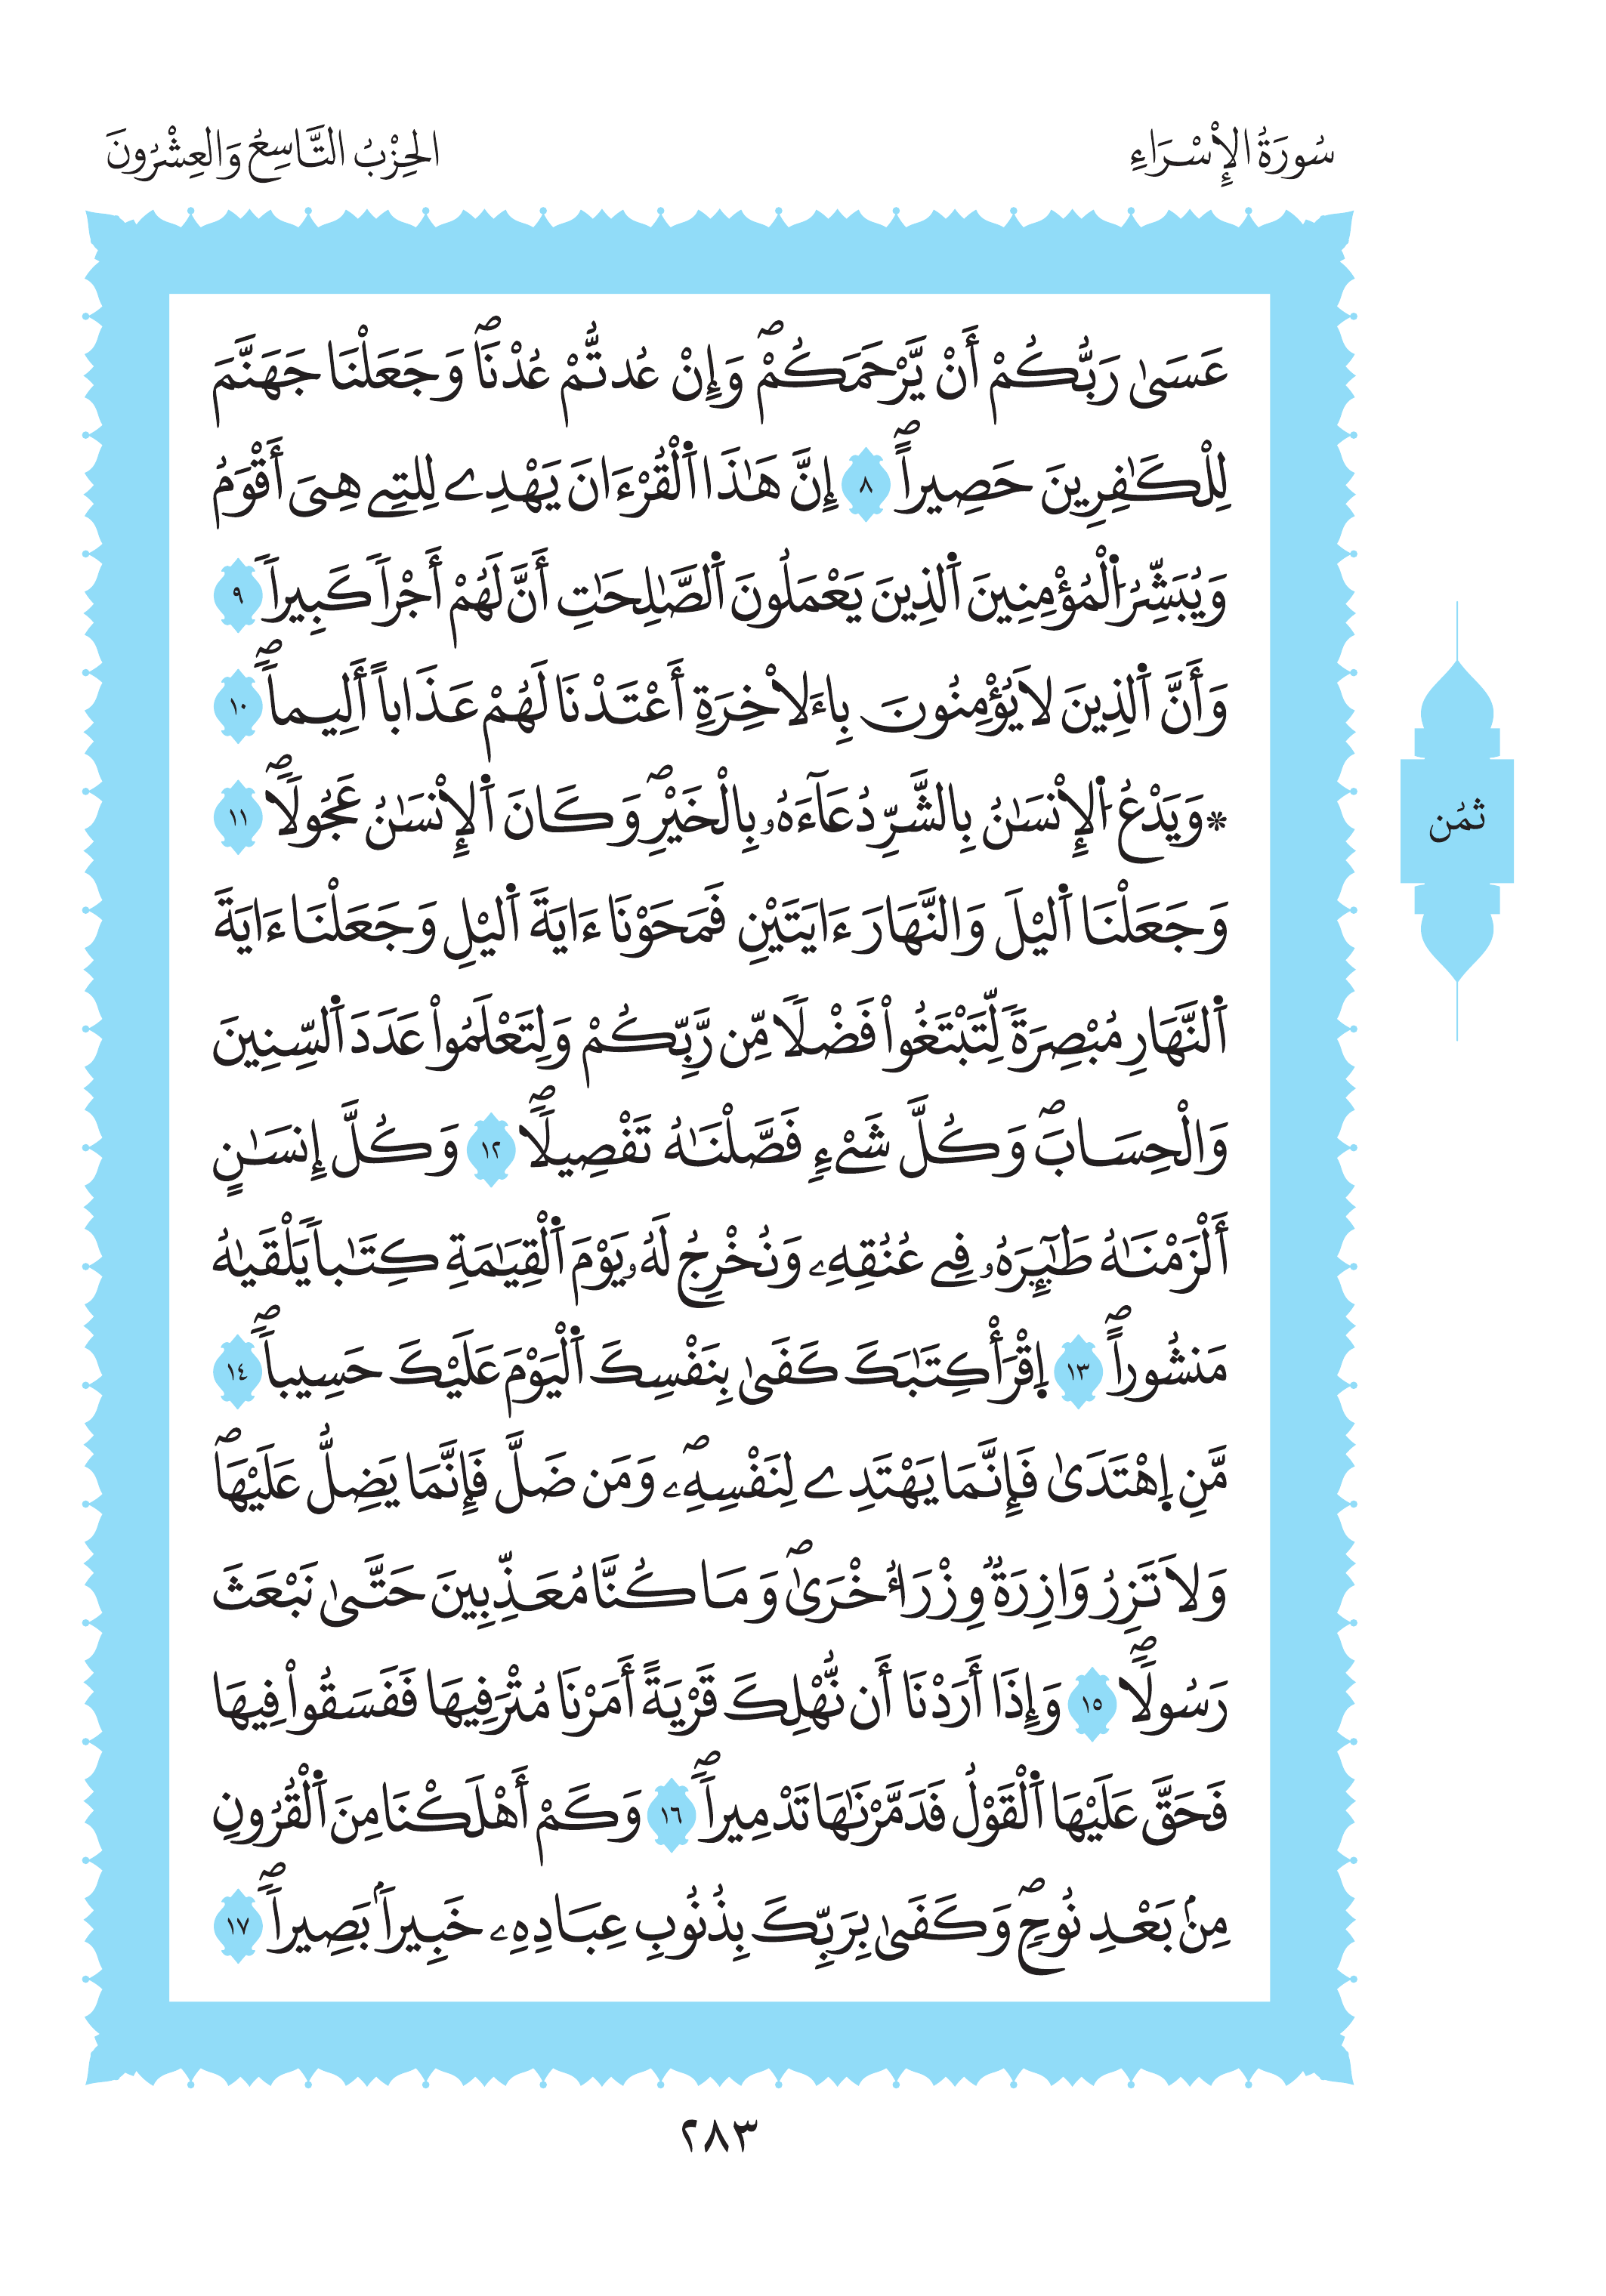 سُورَةُ الإِسْرَاءِ
الحِزْبُ التَّاسِعُ وَالعِشْرُونَ
عَسَىٰ رَبُّكُمْ أَنْ يَّرْحَمَكُمْۖ وَإِنْ عُدتُّمْ عُدْنَاۖ وَجَعَلْنَا جَهَنَّمَ
لِلْكَٰفِرِينَ حَصِيراًۖ ٨ إِنَّ هَٰذَا اَ۬لْقُرْءَانَ يَهْدِے لِلتِے هِيَ أَقْوَمُ
وَيُبَشِّرُ اُ۬لْمُؤْمِنِينَ اَ۬لذِينَ يَعْمَلُونَ اَ۬لصَّٰلِحَٰتِ أَنَّ لَهُمْ أَجْراٗ كَبِيراٗ ٩
وَأَنَّ اَ۬لذِينَ لَا يُؤْمِنُونَ بِاءَلَاخِرَةِ أَعْتَدْنَا لَهُمْ عَذَاباً أَلِيماٗۖ ١٠
* وَيَدْعُ اُ۬لِانسَٰنُ بِالشَّرِّ دُعَآءَهُۥ بِالْخَيْرِۖ وَكَانَ اَ۬لِانسَٰنُ عَجُولاٗۖ ١١
وَجَعَلْنَا اَ۬ليْلَ وَالنَّهَارَ ءَايَتَيْنِ فَمَحَوْنَا ءَايَةَ اَ۬ليْلِ وَجَعَلْنَا ءَايَةَ
اَ۬لنَّهَارِ مُبْصِرَةٗ لِّتَبْتَغُواْ فَضْلاٗ مِّن رَّبِّكُمْ وَلِتَعْلَمُواْ عَدَدَ اَ۬لسِّنِينَ
وَالْحِسَابَۖ وَكُلَّ شَےْءٖ فَصَّلْنَٰهُ تَفْصِيلاٗۖ ١٢ وَكُلَّ إِنسَٰنٍ
أَلْزَمْنَٰهُ طَٰٓئِرَهُۥ فِے عُنُقِهِۦ وَنُخْرِجُ لَهُۥ يَوْمَ اَ۬لْقِيَٰمَةِ كِتَٰباٗ يَلْقَيٰهُ
مَنشُوراًۖ ١٣ اِ۪قْرَأْ كِتَٰبَكَ كَفَىٰ بِنَفْسِكَ اَ۬لْيَوْمَ عَلَيْكَ حَسِيباٗۖ ١٤
مَّنِ اِ۪هْتَدَىٰ فَإِنَّمَا يَهْتَدِے لِنَفْسِهِۦۖ وَمَن ضَلَّ فَإِنَّمَا يَضِلُّ عَلَيْهَاۖ
وَلَا تَزِرُ وَازِرَةٞ وِزْرَ أُخْرَىٰۖ وَمَا كُنَّا مُعَذِّبِينَ حَتَّىٰ نَبْعَثَ
رَسُولاٗۖ ١٥ وَإِذَا أَرَدْنَا أَن نُّهْلِكَ قَرْيَةً أَمَرْنَا مُتْرَفِيهَا فَفَسَقُواْ فِيهَا
فَحَقَّ عَلَيْهَا اَ۬لْقَوْلُ فَدَمَّرْنَٰهَا تَدْمِيراٗۖ ١٦ وَكَمْ أَهْلَكْنَا مِنَ اَ۬لْقُرُونِ
مِنۢ بَعْدِ نُوحٖۖ وَكَفَىٰ بِرَبِّكَ بِذُنُوبِ عِبَادِهِۦ خَبِيراَۢ بَصِيراٗۖ ١٧
ثمُن
٢٨٣